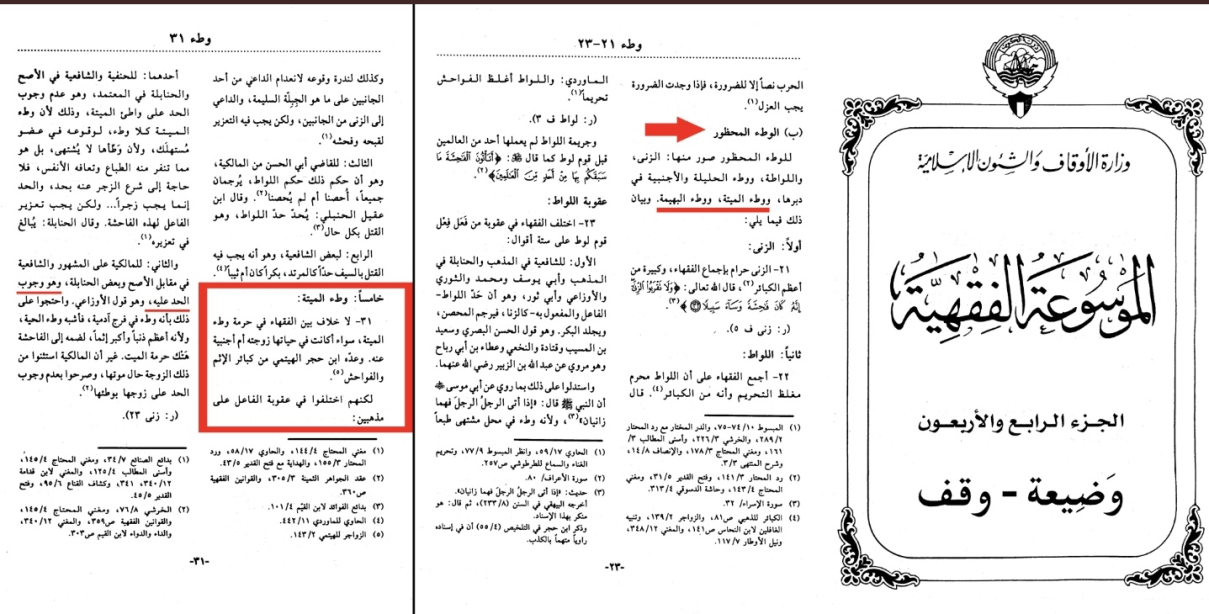 وزارة الأوقاف والشئون الإسلامية
الموسوعة الفقهية
الجزء الرابع والأربعون
وَضِيعة - وقف
وطء ٢١-٢٣
الحرب نصاً إلا للضرورة، فإذا وجدت الضرورة
يجب العزل(١).
(ب) الوطء المحظور
للوطء المحظور صور منها: الزنى،
واللواطة، ووطء الحليلة والأجنبية في
دبرها، ووطء الميتة، ووطء البهيمة. وبيان
ذلك فيما يلي:
أولاً: الزنى:
٢١- الزنى حرام بإجماع الفقهاء، وكبيرة من
أعظم الكبائر(٢)، قال الله تعالى: ﴿وَلَا تَقْرَبُوا الزِّنَىٰ
إِنَّهُ كَانَ فَاحِشَةً وَسَاءَ سَبِيلًا﴾(٣).
(ر: زنى ف ٥).
ثانياً: اللواط:
٢٢- أجمع الفقهاء على أن اللواط محرم
مغلظ التحريم وأنه من الكبائر(٤). قال
(١) المبسوط ١٠/ ٧٤-٧٥، والدر المختار مع رد المحتار
٢٨٩/٢، والخرشي ٢٢٦/٣، وأسنى المطالب ٣/
١٦١، ومغني المحتاج ١٧٨/٣، والإنصاف ١٤/٨،
وشرح المنتهى ٣/٣.
(٢) رد المحتار ١٤١/٣، وفتح القدير ٣١/٥، ومغني
المحتاج ١٤٣/٤، وحاشية الدسوقي ٣١٣/٤.
(٣) سورة الإسراء/ ٣٢.
(٤) الكبائر للذهبي ص٨١، والزواجر ١٣٩/٢، وتنبيه
الغافلين لابن النحاس ص١٤١، والمغني ٣٤٨/١٢،
ونيل الأوطار ١١٧/٧.
الماوردي: واللواط أغلظ الفواحش
تحريماً(١).
(ر: لواط ف ٣).
وجريمة اللواط لم يعملها أحد من العالمين
قبل قوم لوط كما قال ﷻ: ﴿أَتَأْتُونَ الْفَاحِشَةَ مَا
سَبَقَكُم بِهَا مِنْ أَحَدٍ مِّنَ الْعَالَمِينَ﴾(٢).
عقوبة اللواط:
٢٣- اختلف الفقهاء في عقوبة من فَعَل فِعْل
قوم لوط على ستة أقوال:
الأول: للشافعية في المذهب والحنابلة في
المذهب وأبي يوسف ومحمد والثوري
والأوزاعي وأبي ثور، وهو أن حَدّ اللواط-
الفاعل والمفعول به- كالزنا، فيرجم المحصن،
ويجلد البكر. وهو قول الحسن البصري وسعيد
بن المسيب وقتادة والنخعي وعطاء بن أبي رباح
وهو مروي عن عبدالله بن الزبير رضي الله عنهما.
واستدلوا على ذلك بما روي عن أبي موسى ﷺ
أن النبي ﷺ قال: «إذا أتى الرجلُ الرجلَ فهما
زانيان»(٣)، ولأنه وطء في محل مشتهى طبعاً
(١) الحاوي ٥٩/١٧، وانظر المبسوط ٧٧/٩، وتحريم
الغناء والسماع للطرطوشي ص٢٥٧.
(٢) سورة الأعراف/ ٨٠.
(٣) حديث: «إذا أتى الرجلُ الرجلَ فهما زانيان».
أخرجه البيهقي في السنن (٢٣٣/٨)، ثم قال: هو
منكر بهذا الإسناد.
وذكر ابن حجر في التلخيص (٥٥/٤) أن في إسناده
راوياً متهماً بالكذب.
-٢٣-
وطء ٣١
وكذلك لندرة وقوعه لانعدام الداعي من أحد
الجانبين على ما هو الجِبِلّة السليمة، والداعي
إلى الزنى من الجانبين، ولكن يجب فيه التعزير
لقبحه وفحشه(١).
الثالث: للقاضي أبي الحسن من المالكية،
وهو أن حكم ذلك حكم اللواط، يُرجمان
جميعاً، أُحصنا أم لم يُحصنا(٢). وقال ابن
عقيل الحنبلي: يُحدّ حدّ اللواط، وهو
القتل بكل حال(٣).
الرابع: لبعض الشافعية، وهو أنه يجب فيه
القتل بالسيف حدّاً كالمرتد، بكراً كان أم ثيباً(٤).
خامساً: وطء الميتة:
٣١- لا خلاف بين الفقهاء في حرمة وطء
الميتة، سواء أكانت في حياتها زوجته أم أجنبية
عنه. وعدّه ابن حجر الهيتمي من كبائر الإثم
والفواحش(٥).
لكنهم اختلفوا في عقوبة الفاعل على
مذهبين:
(١) مغني المحتاج ١٤٤/٤، والحاوي ٥٨/١٧، ورد
المحتار ١٥٥/٣، والهداية مع فتح القدير ٤٣/٥.
(٢) عقد الجواهر الثمينة ٣٠٥/٣، والقوانين الفقهية
ص٣٦٠.
(٣) بدائع الفوائد لابن القيّم ١٠١/٤.
(٤) الحاوي للماوردي ٤٤٢/١١.
(٥) الزواجر للهيتمي ١٤٣/٢.
أحدهما: للحنفية والشافعية في الأصح
والحنابلة في المعتمد، وهو عدم وجوب
الحد على واطئ الميتة، وذلك لأن وطء
الميتة كلا وطء، لوقوعه في عضو
مُستهلَك، ولأن وَطْأها لا يُشتهى، بل هو
مما تنفر منه الطباع وتعافه الأنفس، فلا
حاجة إلى شرع الزجر عنه بحد، والحد
إنما يجب زجراً... ولكن يجب تعزير
الفاعل لهذه الفاحشة. وقال الحنابلة: يُبالغ
في تعزيره(١).
والثاني: للمالكية على المشهور والشافعية
في مقابل الأصح وبعض الحنابلة، وهو وجوب
الحد عليه، وهو قول الأوزاعي. واحتجوا على
ذلك بأنه وطء في فرج آدمية، فأشبه وطء الحية،
ولأنه أعظم ذنباً وأكبر إثماً، لضمه إلى الفاحشة
هَتْك حرمة الميت. غير أن المالكية استثنوا من
ذلك الزوجة حال موتها، وصرحوا بعدم وجوب
الحد على زوجها بوطئها(٢).
(ر: زنى ٢٣).
(١) بدائع الصنائع ٣٤/٧، ومغني المحتاج ١٤٥/٤،
وأسنى المطالب ١٢٥/٤، والمغني لابن قدامة
٣٤٠/١٢، ٣٤١، وكشاف القناع ٩٥/٦، وفتح
القدير ٤٥/٥.
(٢) الخرشي ٧٦/٨، ومغني المحتاج ١٤٥/٤،
والقوانين الفقهية ص٣٥٩، والمغني ٣٤٠/١٢،
والداء والدواء لابن القيم ص٣٠٣.
-٣١-